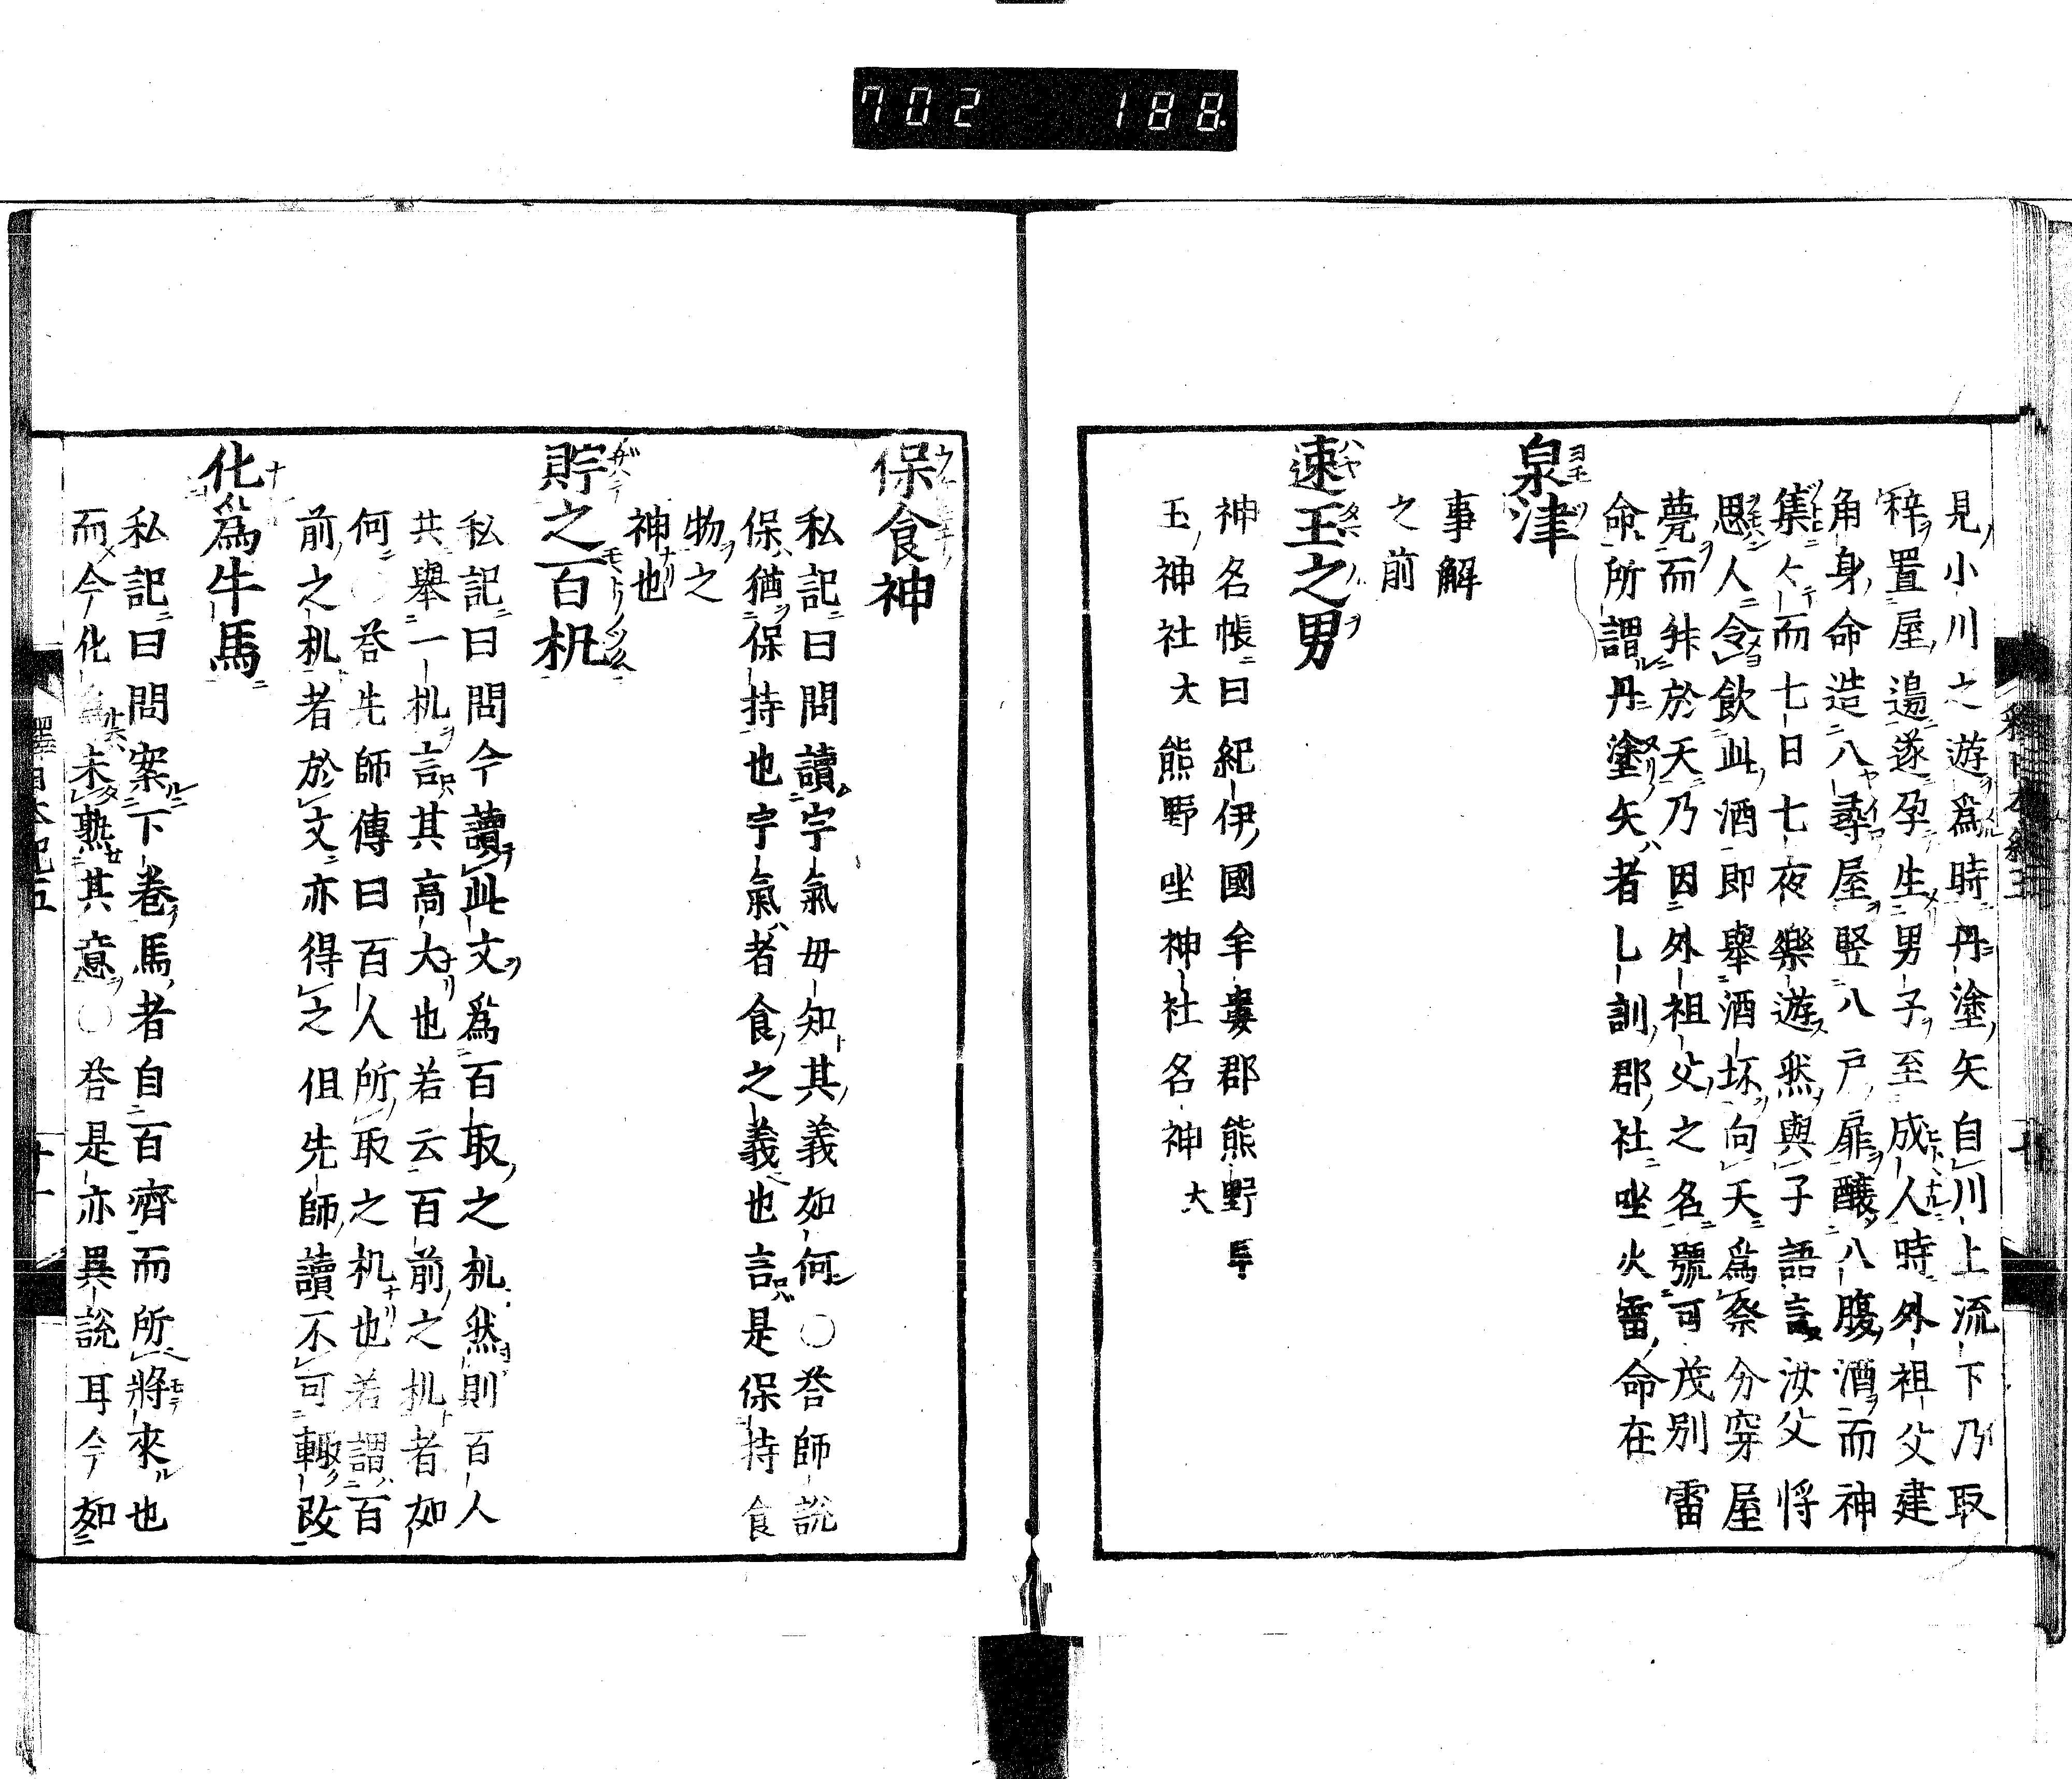 702 188
見小川之遊爲時丹塗矢自川上流下乃取
稡置屋邉遂孕生男子至成人時外祖父建
角身命造八尋屋竪八戸扉醸八腹酒而神
集々而七日七夜樂遊然與子語言汝父將
思人令飲此酒即舉酒坏向天爲祭分穿屋
甍而舛於天乃因外祖父之名號可茂別雷
命所謂丹塗矢者乚訓郡社坐火雷命在
泉津
事解
之前
速玉之男
神名帳曰紀伊國牟婁郡熊野
玉神社大熊野坐神社名神大
保食神
私記曰問讀宇氣毋知其義如何○答師説
保猶保持也宇氣者食之義也言是保持食
物之
神也
貯之百机
私記曰問今讀此文爲百取之机然則百人
共舉一机言其高大也若云百前之机者如
何○答先師傳曰百人所取之机也若謂百
前之机者於文亦得之但先師讀不可輙改
化爲牛馬
私記曰問案下卷馬者自百濟而所將來也
而今化爲未熟其意○答是亦異説耳今如
釋日本紀五
十一